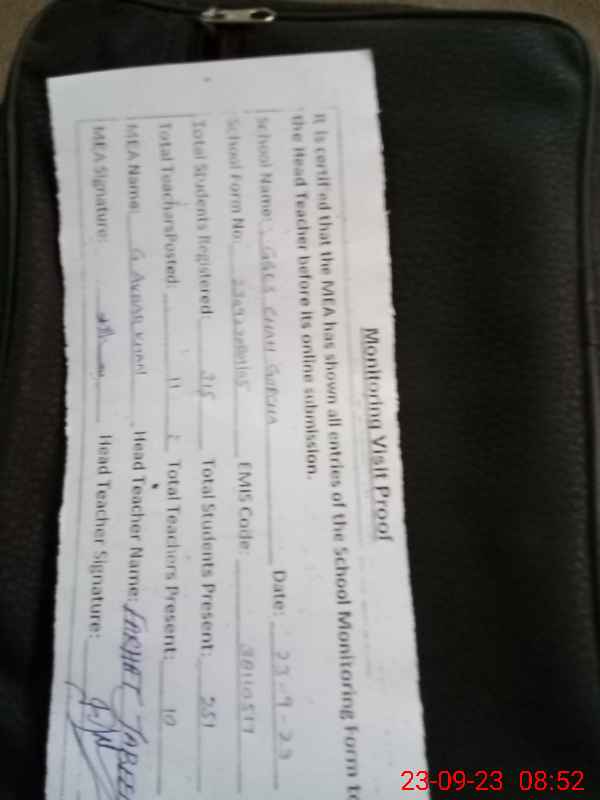 Monitoring Visit Proof
It is certified that the MEA has shown all entries of the School Monitoring Form to
the Head Teacher before its online submission.
School Name: Date: 23-9-23
School Form No: EMIS Code:
Total Students Registered: 315 Total Students Present: 251
Total TeachersPosted: 11 Total Teachers Present: 10
MEA Name: G AKBAR KHAN Head Teacher Name: FARHAT
MEA Signature: Head Teacher Signature:
23-09-23 08:52